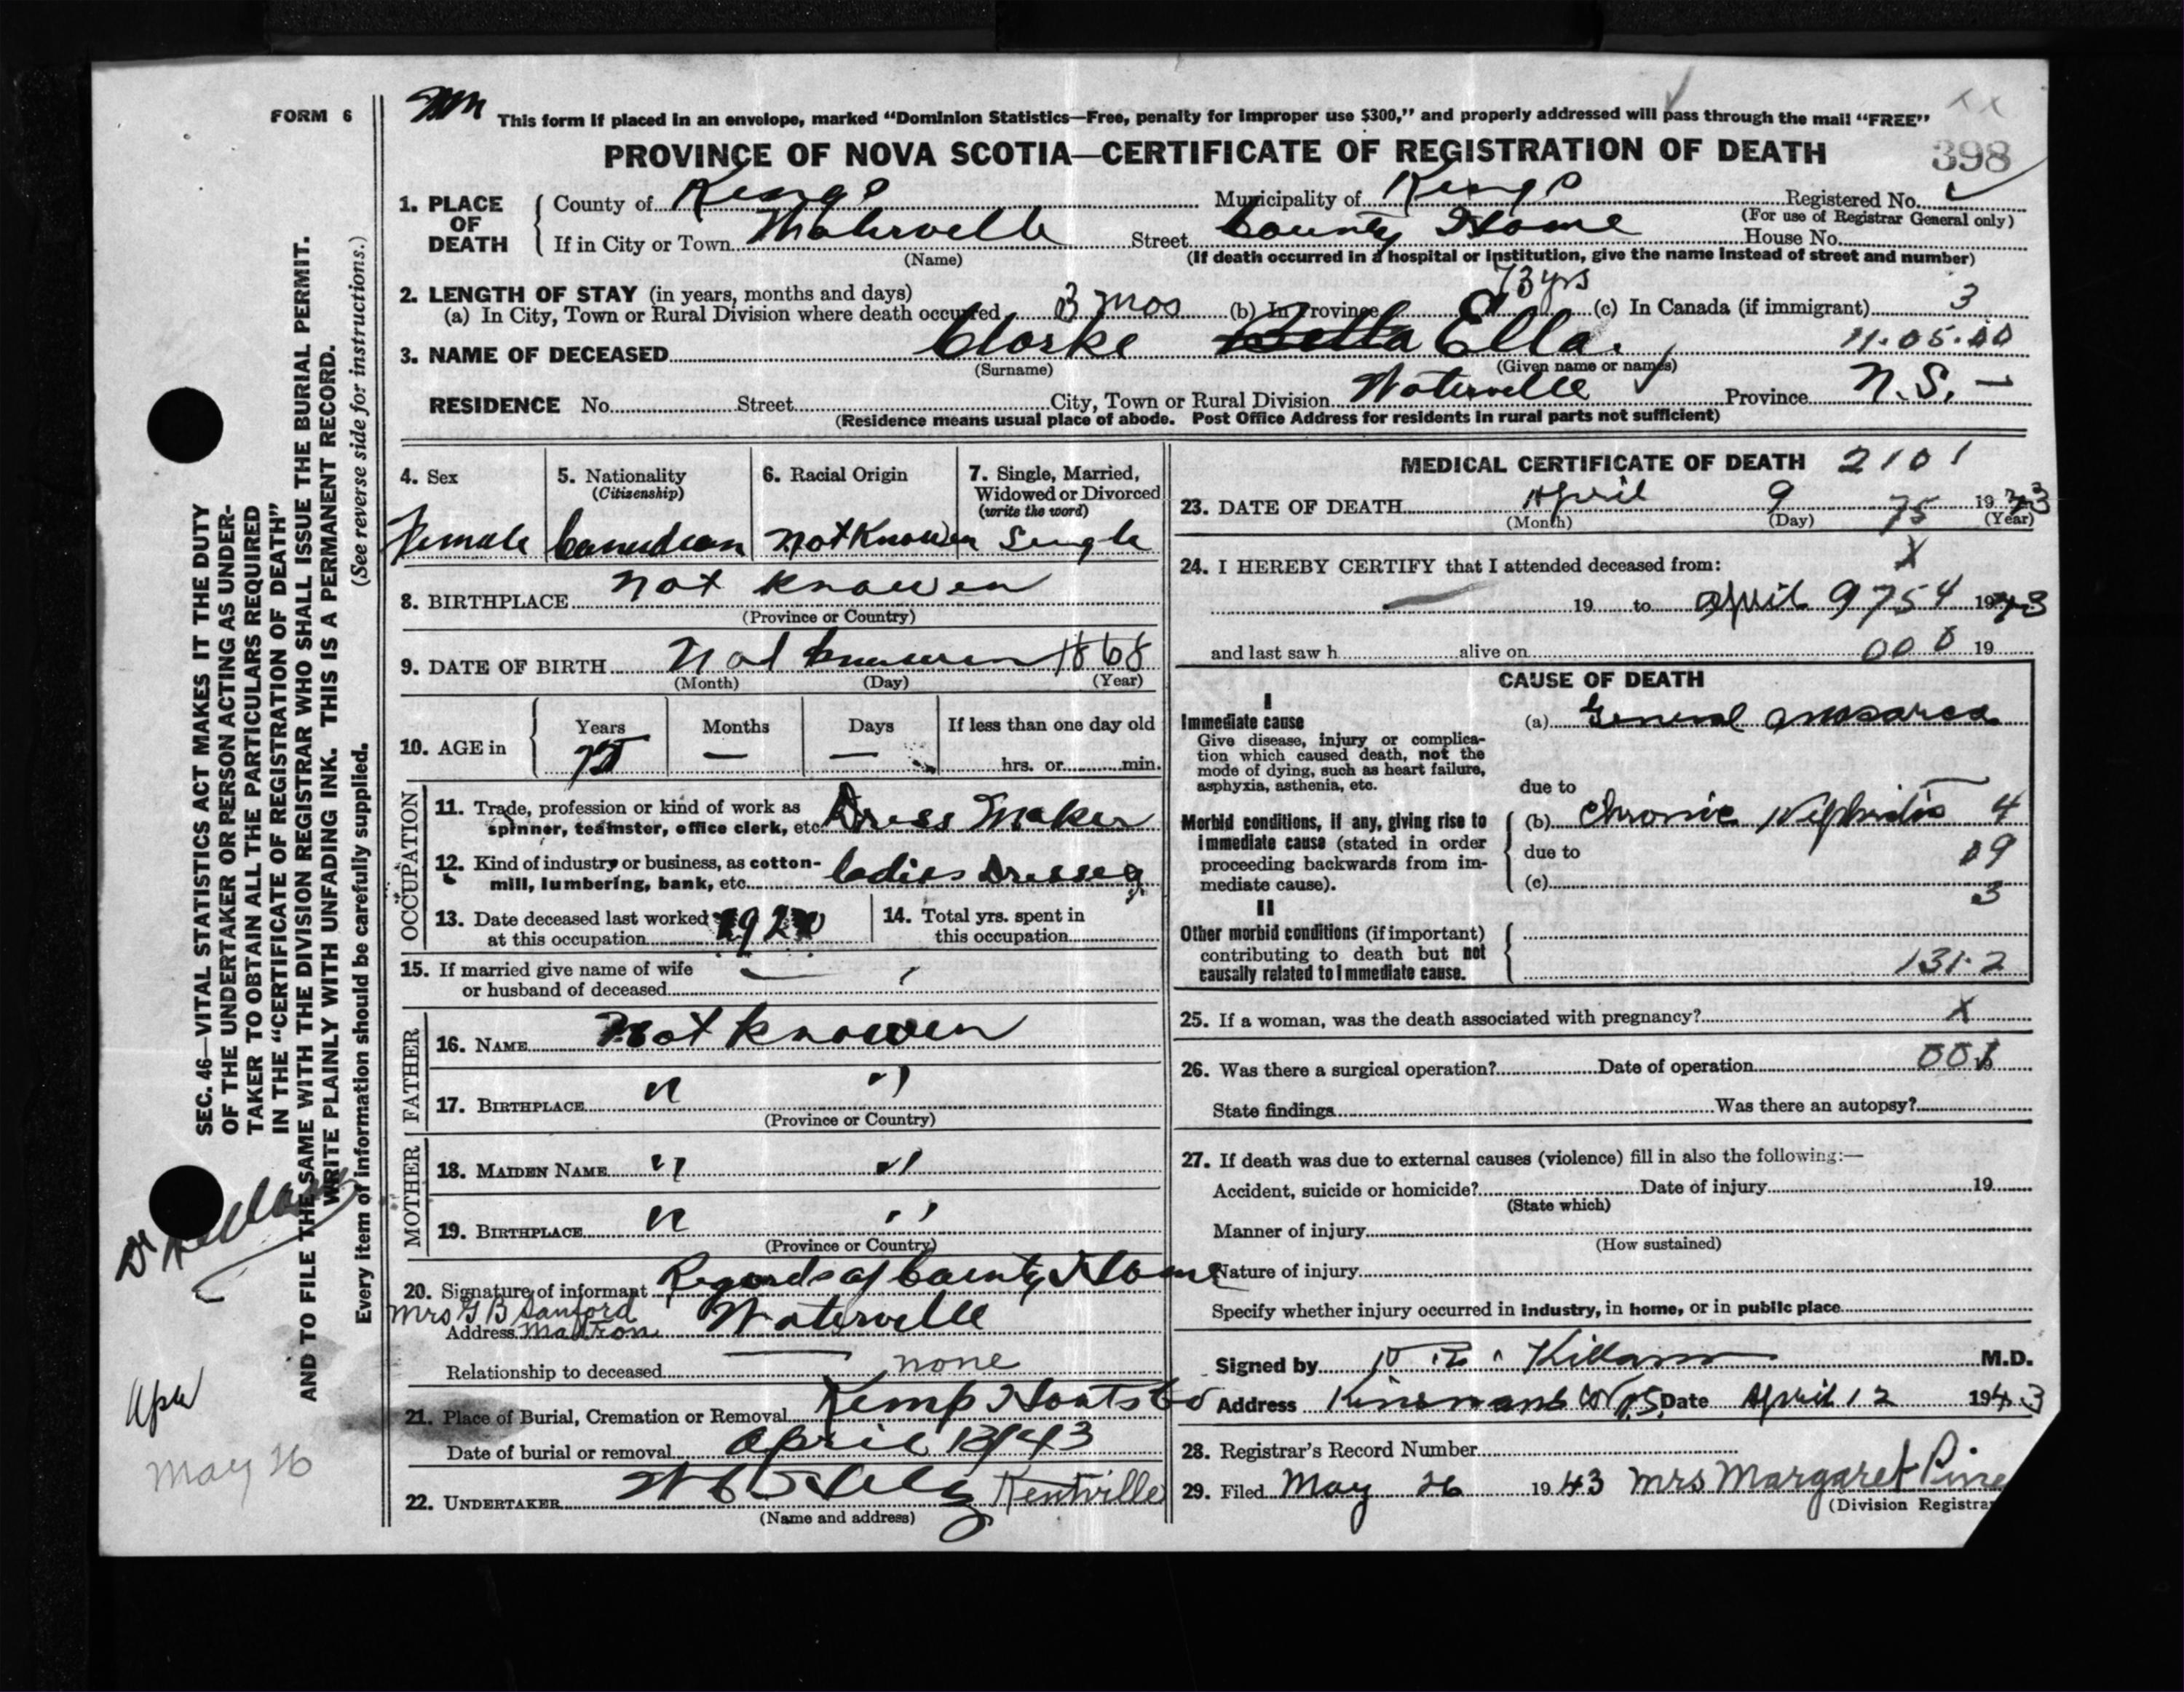 FORM 6
This form if placed in an envelope, marked “Dominion Statistics—Free, penalty for improper use $300,” and properly addressed will pass through the mail “FREE”
PROVINCE OF NOVA SCOTIA—CERTIFICATE OF REGISTRATION OF DEATH
398
1. PLACE OF DEATH
County of Kings Municipality of Kings Registered No.
(For use of Registrar General only)
If in City or Town Waterville Street County Home House No.
(Name) (If death occurred in a hospital or institution, give the name instead of street and number)
2. LENGTH OF STAY (in years, months and days)
(a) In City, Town or Rural Division where death occurred 3 mos (b) In Province 73 yrs (c) In Canada (if immigrant) 3
3. NAME OF DECEASED Clarke Bella Ella. 11.05.00
(Surname) (Given name or names)
RESIDENCE No. Street City, Town or Rural Division Waterville Province N.S. —
(Residence means usual place of abode. Post Office Address for residents in rural parts not sufficient)
4. Sex Female
5. Nationality (Citizenship) Canadian
6. Racial Origin not Knowen
7. Single, Married, Widowed or Divorced (write the word) Single
8. BIRTHPLACE not knowen
(Province or Country)
9. DATE OF BIRTH Not knowen 1868
(Month) (Day) (Year)
10. AGE in Years 75 Months — Days — If less than one day old hrs. or min.
OCCUPATION
11. Trade, profession or kind of work as spinner, teamster, office clerk, etc. Dress Maker
12. Kind of industry or business, as cotton-mill, lumbering, bank, etc. ladies Dresses
13. Date deceased last worked at this occupation 1920
14. Total yrs. spent in this occupation
15. If married give name of wife or husband of deceased —
FATHER
16. NAME Not knowen
17. BIRTHPLACE " "
(Province or Country)
MOTHER
18. MAIDEN NAME " "
19. BIRTHPLACE " "
(Province or Country)
20. Signature of informant Regords of County Home
Mrs G B Sanford
Address Matron Waterville
Relationship to deceased none
21. Place of Burial, Cremation or Removal Kemp Hants Co
Date of burial or removal April 13/43
22. UNDERTAKER Kentville
(Name and address)
MEDICAL CERTIFICATE OF DEATH 2101
23. DATE OF DEATH April 9 75 1943
(Month) (Day) (Year)
24. I HEREBY CERTIFY that I attended deceased from: X
— 19 to April 9 754 1943
and last saw h alive on 000 19
CAUSE OF DEATH
I
Immediate cause (a) General Anasarca
Give disease, injury or complication which caused death, not the mode of dying, such as heart failure, asphyxia, asthenia, etc.
due to
Morbid conditions, if any, giving rise to immediate cause (stated in order proceeding backwards from immediate cause).
(b) Chronic Nephritis 4
due to 09
(c) 3
II
Other morbid conditions (if important) contributing to death but not causally related to immediate cause.
131.2
25. If a woman, was the death associated with pregnancy? X
26. Was there a surgical operation? Date of operation
State findings Was there an autopsy?
27. If death was due to external causes (violence) fill in also the following:—
Accident, suicide or homicide? Date of injury 19
(State which)
Manner of injury
(How sustained)
Nature of injury
Specify whether injury occurred in industry, in home, or in public place
Signed by Killam M.D.
Address Kinsmans Cor N.S. Date April 12 1943
28. Registrar’s Record Number
29. Filed May 26 1943 Mrs Margaret
(Division Registra
SEC. 46—VITAL STATISTICS ACT MAKES IT THE DUTY
OF THE UNDERTAKER OR PERSON ACTING AS UNDER-
TAKER TO OBTAIN ALL THE PARTICULARS REQUIRED
IN THE “CERTIFICATE OF REGISTRATION OF DEATH”
AND TO FILE THE SAME WITH THE DIVISION REGISTRAR WHO SHALL ISSUE THE BURIAL PERMIT.
WRITE PLAINLY WITH UNFADING INK. THIS IS A PERMANENT RECORD.
Every item of information should be carefully supplied. (See reverse side for instructions.)
Dr Killam
May 26